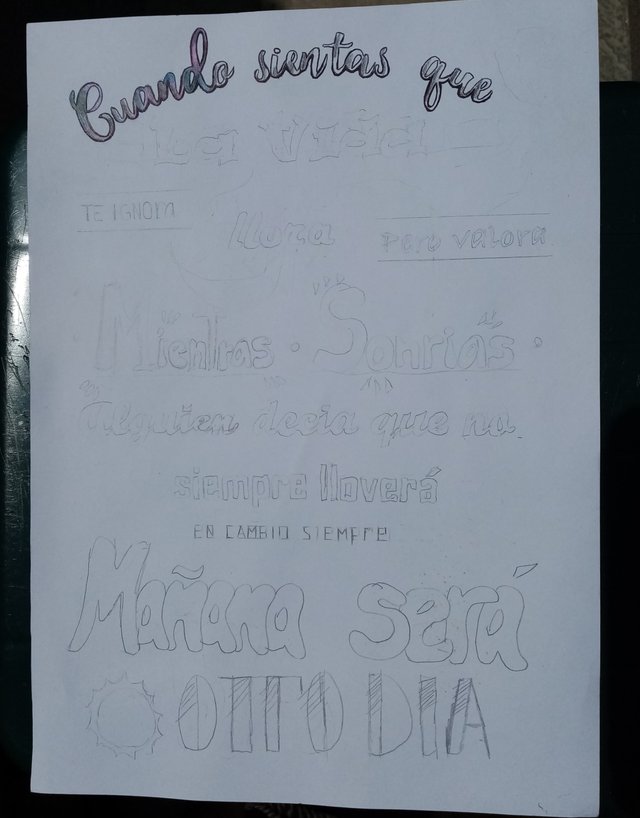 Cuando sientas que
La Vida
TE IGNORA
llora
Pero valora
Mientras • Sonrías •
Alguien decia que no
siempre lloverá
EN CAMBIO SIEMPRE
Mañana será
OTRO DIA